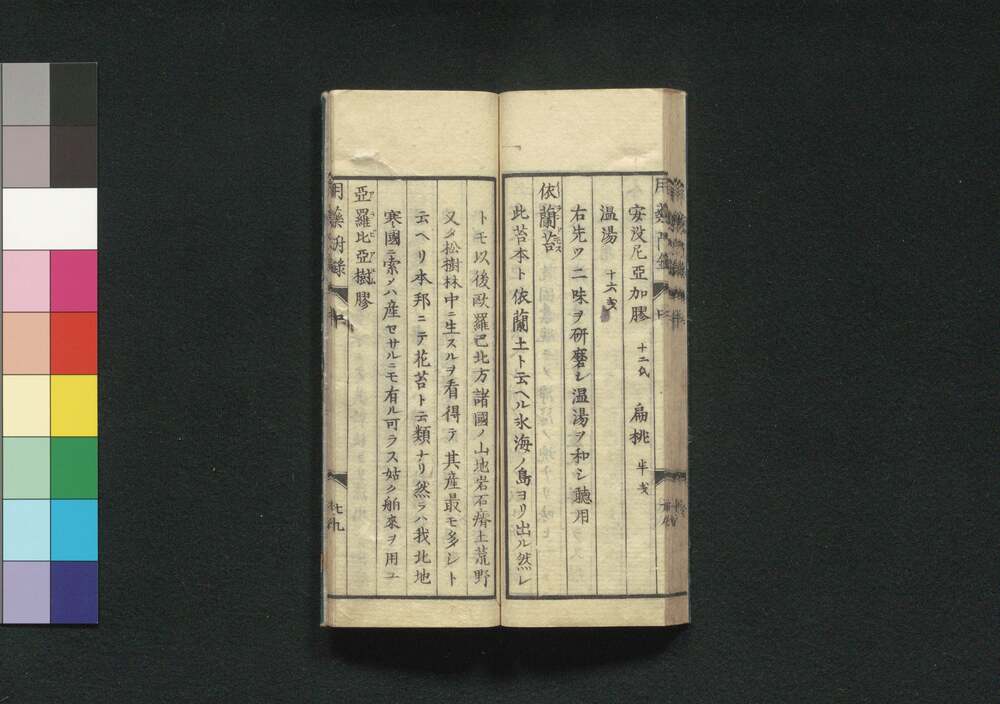 安没尼亞加膠 十二氏 扁桃 半戔
温湯 十六戔
右先ツ二味ヲ研磨シ温湯ヲ和シ聽用
依蘭苔
此苔本ト依蘭土ト云ヘル氷海ノ島ヨリ出ル然レ
トモ以後歐羅巴北方諸國ノ山地岩石瘠土荒野
又タ松樹林中ニ生スルヲ看得テ其産最モ多シト
云ヘリ本邦ニテ花苔ト云類ナリ然ラハ我北地
寒國ニ索メハ産セサルニモ有ル可ラス姑ク舶來ヲ用ユ
亞羅比亞樹膠
用藥 中
七九